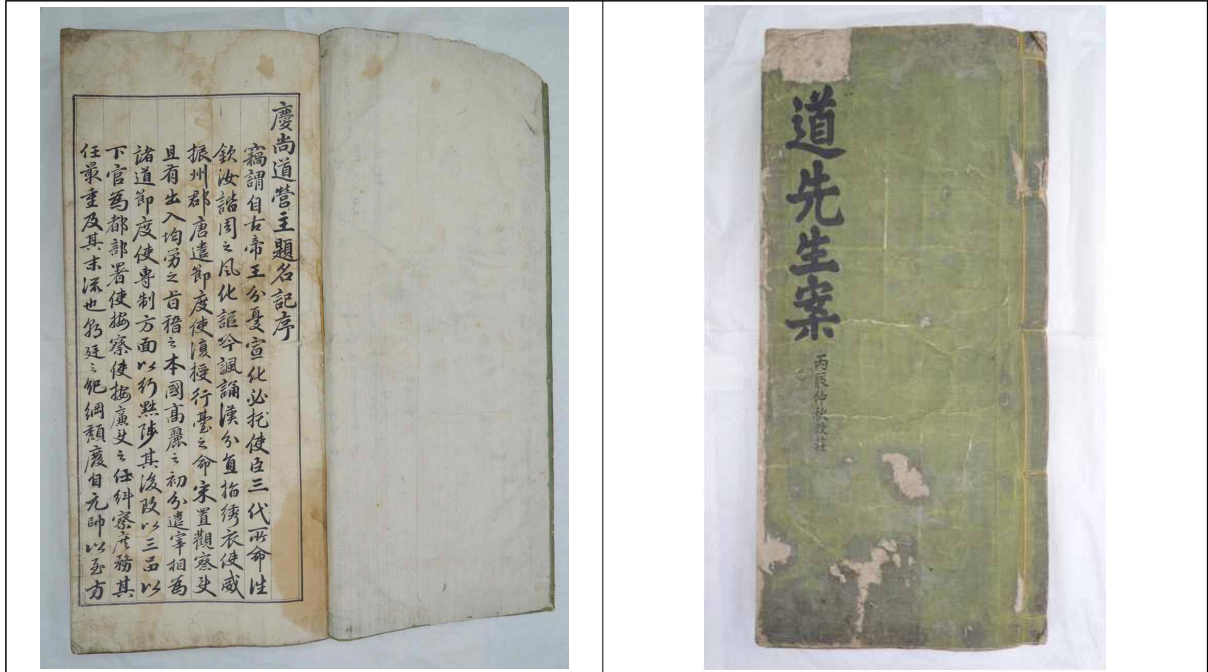 慶尚道營主題名記序
竊謂自古帝王分憂宣化必托使臣三代所命往
欽汝諧周之風化謳吟諷誦漢分直指綉衣使威
振州郡唐遣節度使復授行臺之命宋置觀察使
且有出入均勞之旨稽之本國高麗之初分遣宰相為
諸道節度使專制方面以行黜陟其後改以三品以
下官爲都部署使按察使按廉使之任糾察庶務其
任最重及其末流也朝廷之紀綱頹廢自元帥以至方
道先生案
丙辰仲秋改莊